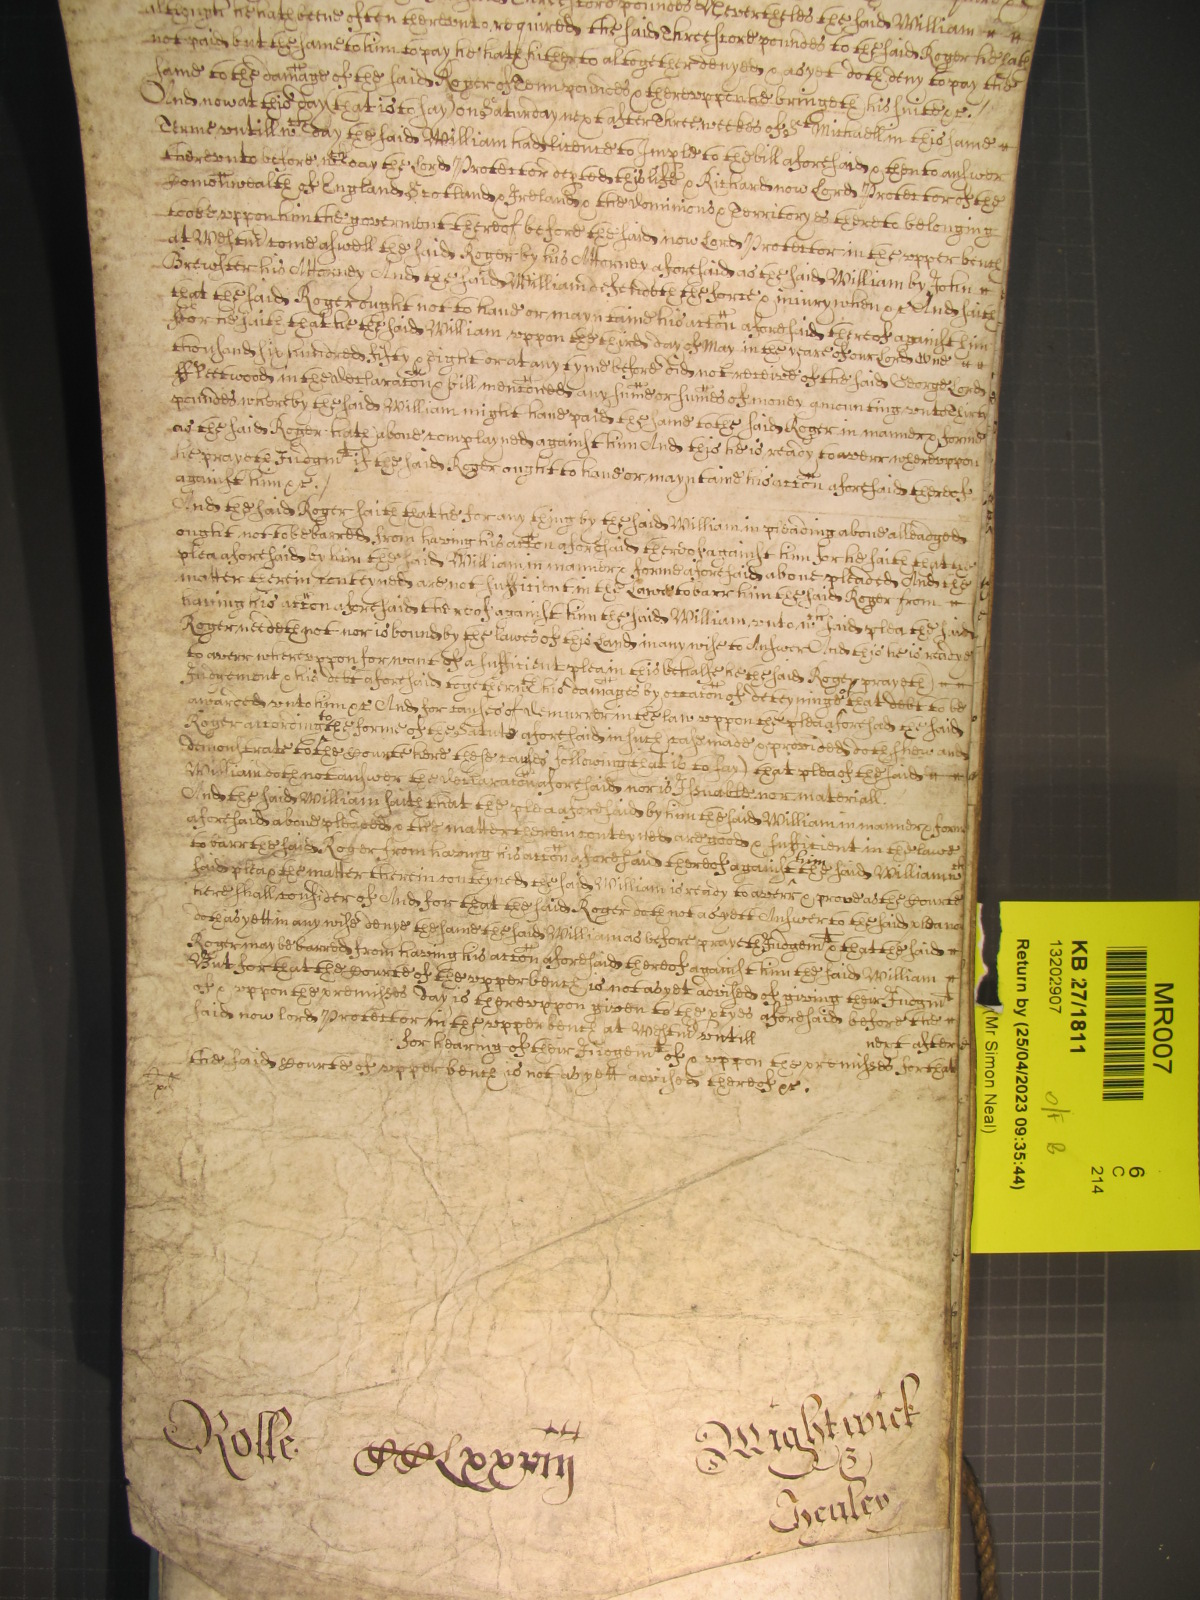 Threescore poundes Neverthelesse the said William
although he hath beene often therevnto required the said Threescore poundes to the said Roger he hath
not paid but the same to him to pay he hath hitherto altogether denyed & as yet doth deny to pay the
same to the damage of the said Roger of Tenn poundes & therevppon he bringeth his suite &c.
And now at this day (that is to say) on Saturday next after Three weekes of St Michaell in this same
Terme vntill wch day the said William had licence to Imple to the bill aforesaid & then to answer
therevnto before wch day the Lord Protector departed this life & Richard now Lord Protector of the
Comonwealth of England Scotland & Ireland & the dominions & Territoryes thereto belonging
tooke vppon him the government thereof before the said now Lord Protector in the vpper bench
at Westmr come aswell the said Roger by his Attorney aforesaid as the said William by John
Brewster his Attorney And the said William defendeth the force & iniury when &c And saith
that the said Roger ought not to have or mayntaine his accon aforesaid thereof against him
For he saith that he the said William vppon the third day of May in the yeare of our Lord One
thousand six hundred Fifty & Eight or at any tyme before did not receive of the said George Lord
ffleetwood in the declaracon & bill menconed any sume or sumes of money amounting vnto thirty
poundes whereby the said William might have paid the same to the said Roger in manner & forme
as the said Roger hath above complayned against him And this he is ready to averr wherevppon
he prayeth Iudgmt if the said Roger ought to have or mayntaine his accon aforesaid thereof
against him &c.
And the said Roger saith that he for any thing by the said William in pleading above alleadged
ought not to be barred from having his accon aforesaid thereof against him For he saith that the
plea aforesaid by him the said William in manner & forme aforesaid above pleaded And the
matter therein conteyned are not sufficient in the Lawe to barr him the said Roger from
having his accon aforesaid thereof against him the said William vnto wch said plea the said
Roger needeth not nor is bound by the lawes of this Land in any wise to Answer And this he is ready
to averr wherevppon for want of a sufficient plea in this behalfe he the said Roger prayeth
Iudgement & his debt aforesaid together wth his damages by occacon of deteyninge of that debt to be
awarded vnto him &c And for causes of demurrer in the law vppon the plea aforesaid the said
Roger according to the forme of the Statute aforesaid in such case made & provided doth shew and
demonstrate to the Courte here these causes following (that is to say) that plea of the said
William doth not answer the declaracon aforesaid nor is Issuable nor materiall.
And the said William saith that the plea aforesaid by him the said William in manner & forme
aforesaid above pleaded & the matter therein conteyned are good & sufficient in the lawe
to barr the said Roger from having his accon aforesaid thereof against him the said William wch
said plea & the matter therein conteyned the said William is ready to averr & prove as the Courte
here shall consider of And for that the said Roger doth not as yett Answer to the said plea nor
doth as yett in any wise denye the same the said William as before prayeth Iudgemt & that the said
Roger may be barred from having his accon aforesaid thereof against him the said William
But for that the Courte of the vpper bench is not as yet advised of giving their Iudgmt
of & vppon the premisses Day is therevppon given to the ptyes aforesaid before the
said now Lord Protector in the vpper bench at Westmr vntill next after
for hearing of their Iudgemt of & vppon the premisses for that
the said Courte of vpper bench is not as yett advised thereof &c.
Rolle CCLxxviij
Wightwick
Henley
MR007
6
C
214
KB 27/1811
13202907
Return by (25/04/2023 09:35:44)
(Mr Simon Neal)